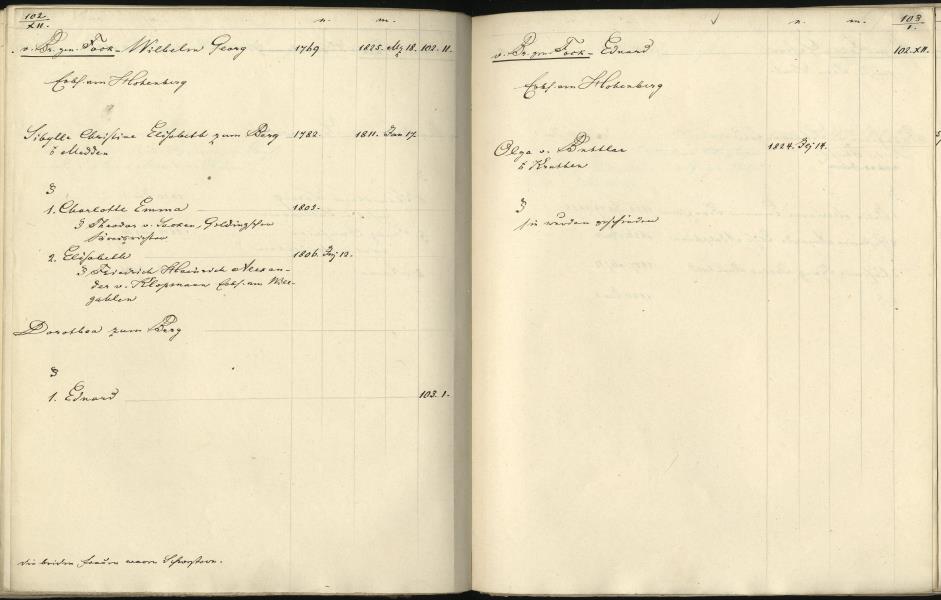 102
XII.
n. m.
v. Br. gen. Fock - Wilhelm Georg 1769 1825. Mz 18. 102. II.
Erbh. am Hohenberg
Sibylle Christine Elisabeth zum Berg 1782. 1811. Jan 17.
Medden
1. Charlotte Emma 1803.
Theodor v. Sacken, Goldingscher
2. Elisabeth 1806. 12.
Friedrich Heinrich Alexan-
der v. Klopmann Erbh. am Würz-
gahlen
Dorothea zum Berg
1. Eduard 103. I.
die beiden Frauen waren Schwestern.
n. m.
103
I.
v. Br. gen. Fock - Eduard 102. XII.
Erbh. am Hohenberg
Olga v. Buttlar 1824. 14.
Kruthen
sie wurden geschieden